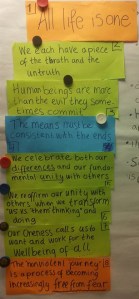 1
All life is one
We each have a piece
of the thruth and the
untruth
Human beings are more
than the evil they some-
times commit
The means must be
consistent with the ends
We celebrate both our
differences and our funda-
mental unity with others
We reaffirm our unity with
others when we transform
"us vs them" thinking and
doing
Our Oneness calls us to
want and work for the
wellbeing of all
The nonviolent journey
is a process of becoming
increasingly free from fear